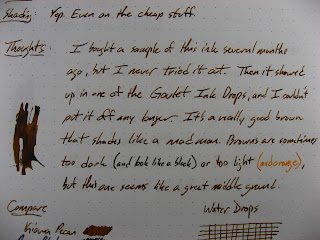 Shading: Yep. Even on the cheap stuff.
Thoughts: I bought a sample of this ink several months
ago, but I never tried it out. Then it showed
up in one of the Goulet Ink Drops, and I couldn't
put it off any longer. It's a really good brown
that shades like a mad man. Browns are sometimes
too dark (and look like a black) or too light (and orange),
but this one seems like a great middle ground.
Compare Water Drops
Pecan